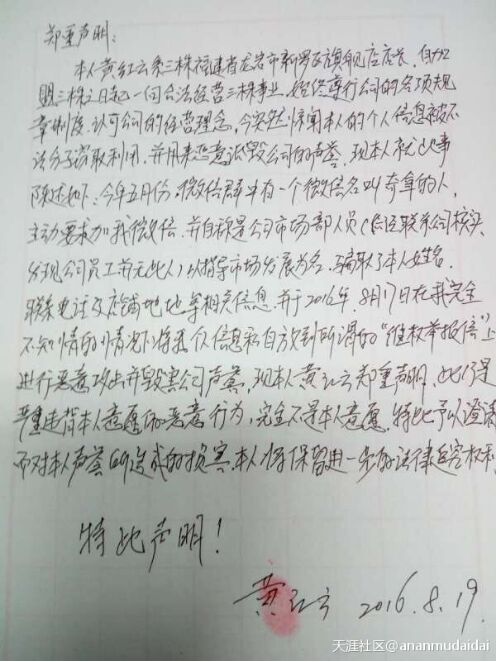 郑重声明:
本人黄红云系三株福建省龙岩市新罗区旗舰店店长,自加
盟三株之日起一向合法经营三株事业,始终遵行公司的各项规
章制度,认可公司的经营理念,今突然惊闻本人的个人信息被不
法分子盗取利用,并用来恶意诋毁公司的声誉,现本人就此事
陈述如下:今年五月份,微信群中有一个微信名叫奇草的人,
主动要求加我微信,并自称是公司市场部人员(后经联系公司核实,
发现公司员工并无此人)以指导市场发展为名,骗取了本人姓名,
联系电话及店铺地址等相关信息,并于2016年,8月17日在我完全
不知情的情况下将我个人信息私自放到所谓的“维权举报信”上
进行恶意攻击并毁害公司声誉,现本人黄红云郑重声明,此行是
严重违背本人意愿的恶意行为,完全不是本人意愿,特此予以澄清
而对本人声誉所造成的损害,本人将保留进一步的法律追究权利.
特此声明!
黄红云 2016.8.19.
天涯社区@ananmudaidai